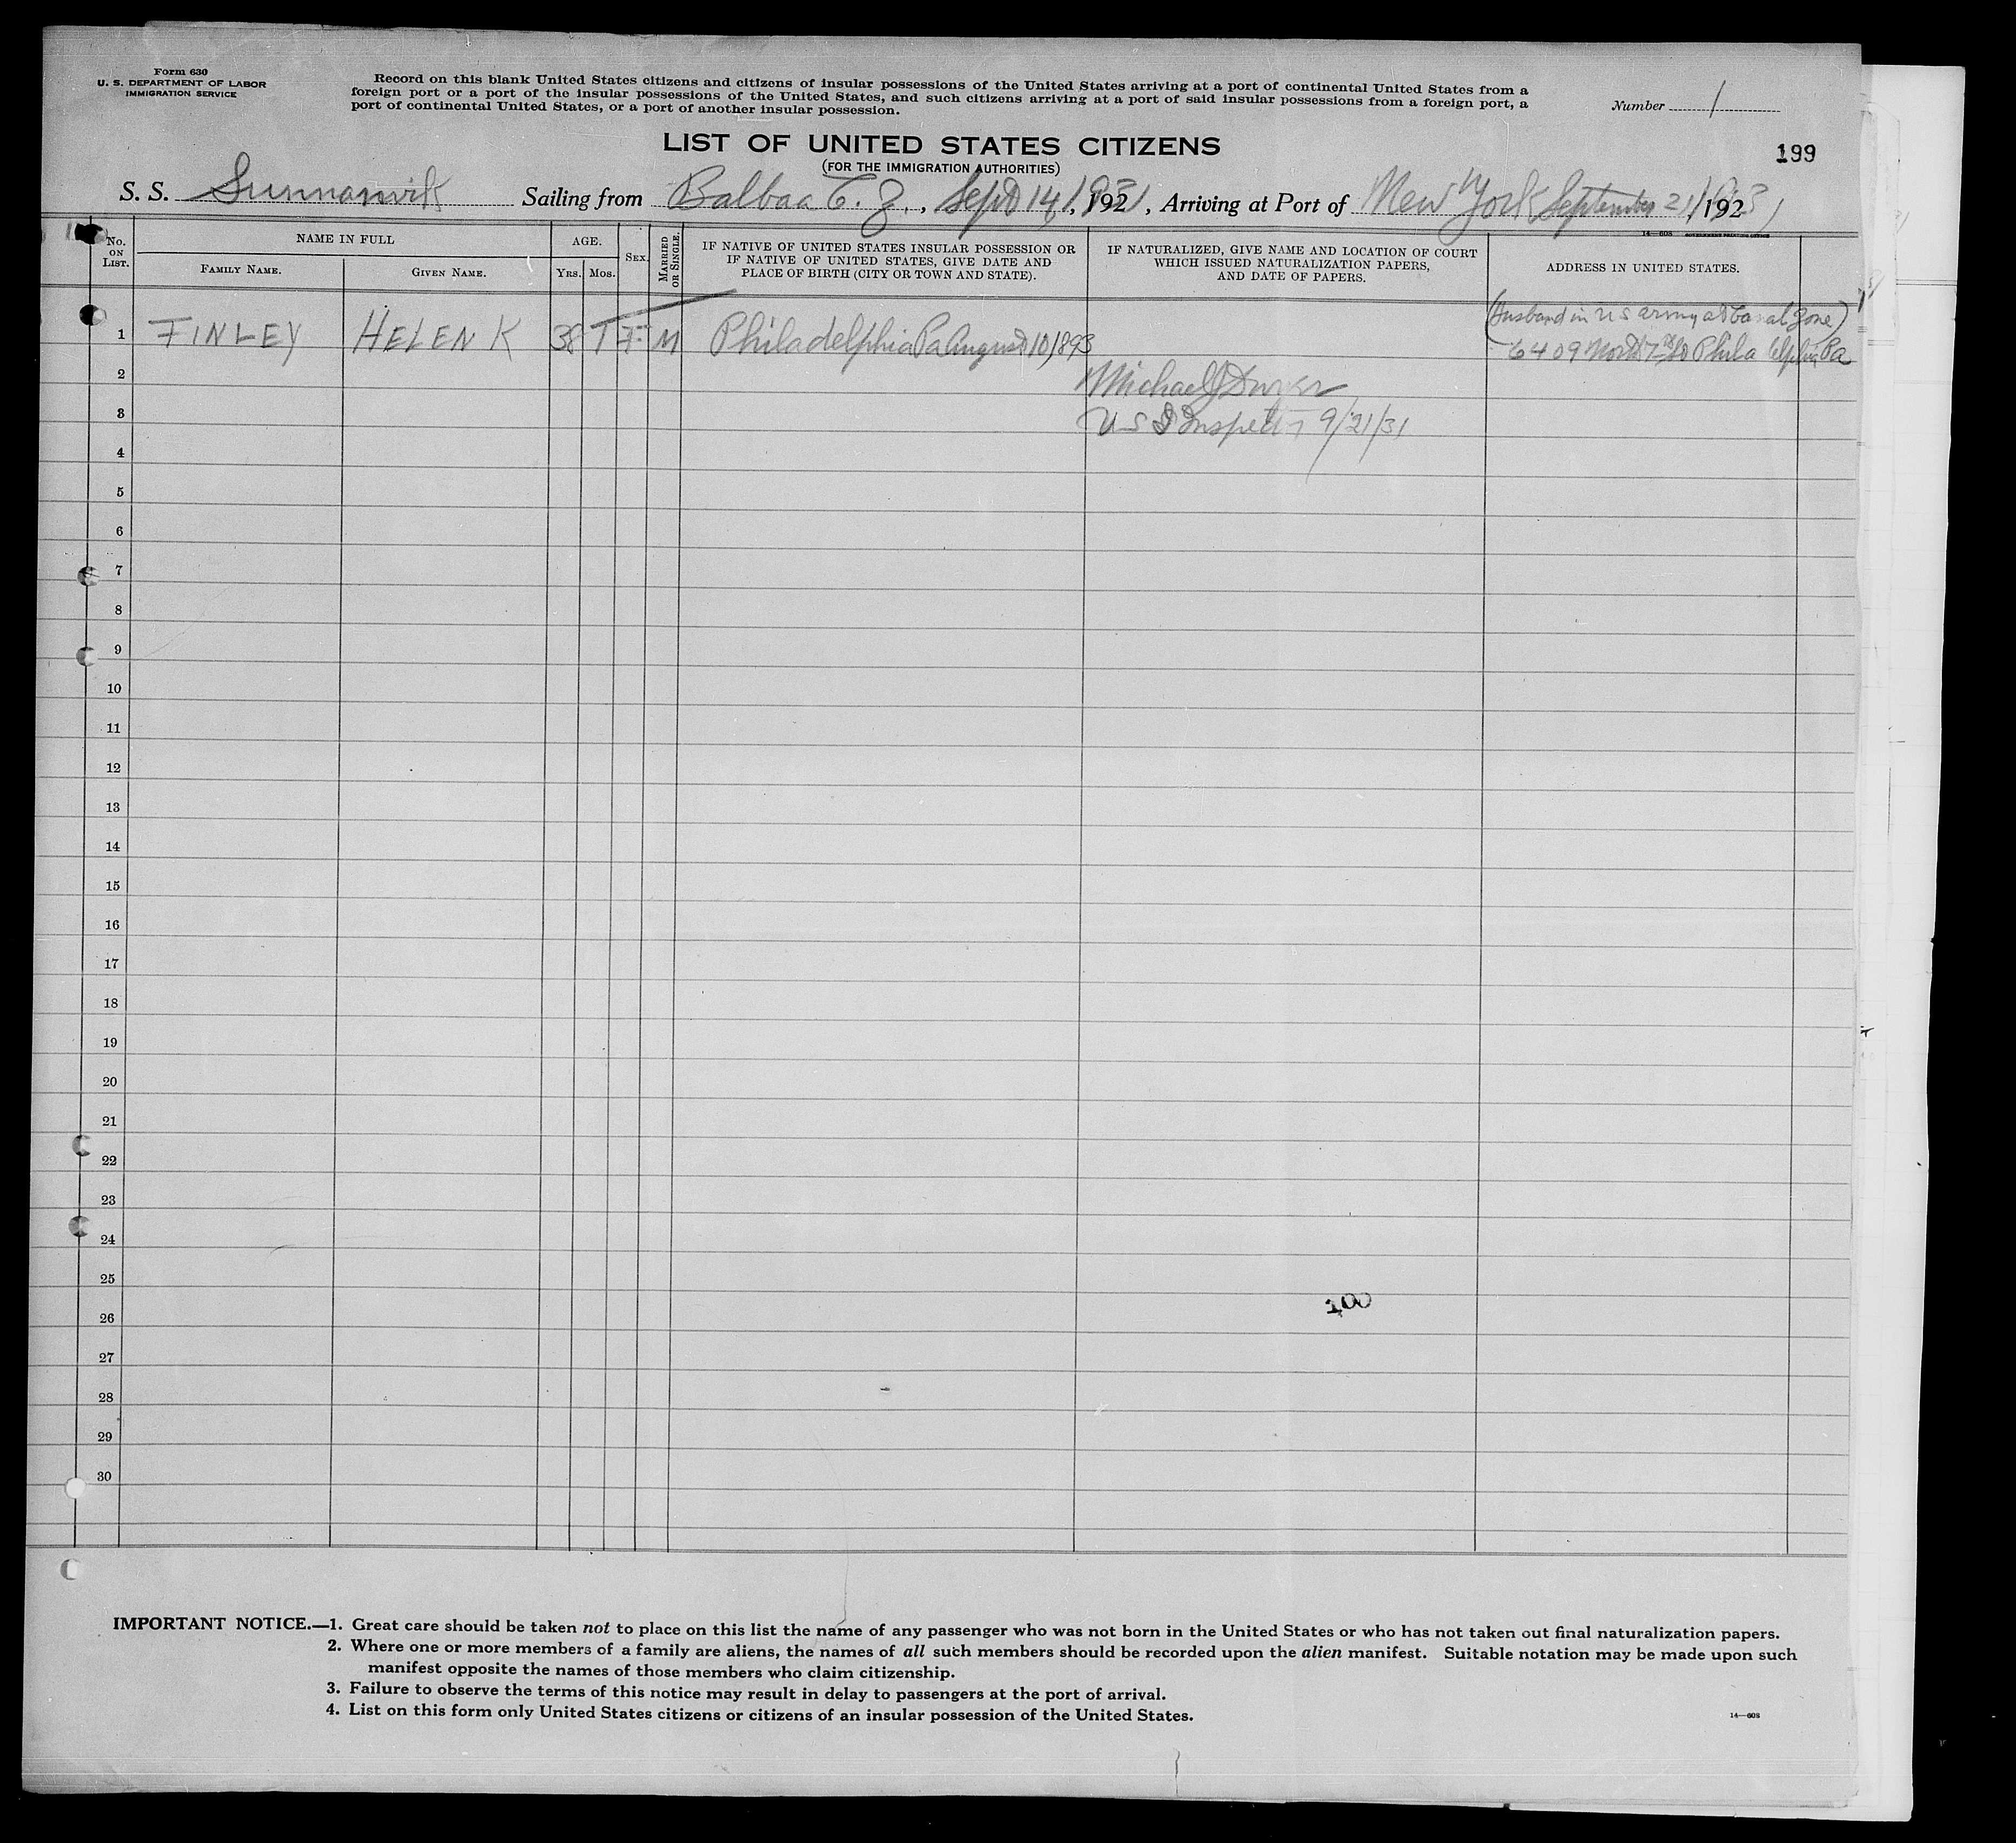 Form 630
U. S. DEPARTMENT OF LABOR
IMMIGRATION SERVICE
Record on this blank United States citizens and citizens of insular possessions of the United States arriving at a port of continental United States from a
foreign port or a port of the insular possessions of the United States, and such citizens arriving at a port of said insular possessions from a foreign port, a
port of continental United States, or a port of another insular possession.
Number 1
LIST OF UNITED STATES CITIZENS
199
(FOR THE IMMIGRATION AUTHORITIES)
S. S. Sunnanvik Sailing from Balboa C. Z., Sept 14, 1931, Arriving at Port of New York September 21, 1931
14—608 GOVERNMENT PRINTING OFFICE
No. ON LIST.
NAME IN FULL
FAMILY NAME.
GIVEN NAME.
AGE.
YRS.
MOS.
SEX.
MARRIED OR SINGLE.
IF NATIVE OF UNITED STATES INSULAR POSSESSION OR
IF NATIVE OF UNITED STATES, GIVE DATE AND
PLACE OF BIRTH (CITY OR TOWN AND STATE).
IF NATURALIZED, GIVE NAME AND LOCATION OF COURT
WHICH ISSUED NATURALIZATION PAPERS,
AND DATE OF PAPERS.
ADDRESS IN UNITED STATES.
(Husband in US army at Canal Zone)
1 FINLEY HELEN K 38 1 F M Philadelphia Pa August 10/1893 6409 North 7th St Philadelphia Pa
2 Michael J Dwyer
3 US I Inspector 9/21/31
4
5
6
7
8
9
10
11
12
13
14
15
16
17
18
19
20
21
22
23
24
25
100
26
27
28
29
30
IMPORTANT NOTICE.—1. Great care should be taken not to place on this list the name of any passenger who was not born in the United States or who has not taken out final naturalization papers.
2. Where one or more members of a family are aliens, the names of all such members should be recorded upon the alien manifest. Suitable notation may be made upon such
manifest opposite the names of those members who claim citizenship.
3. Failure to observe the terms of this notice may result in delay to passengers at the port of arrival.
4. List on this form only United States citizens or citizens of an insular possession of the United States.
14—608